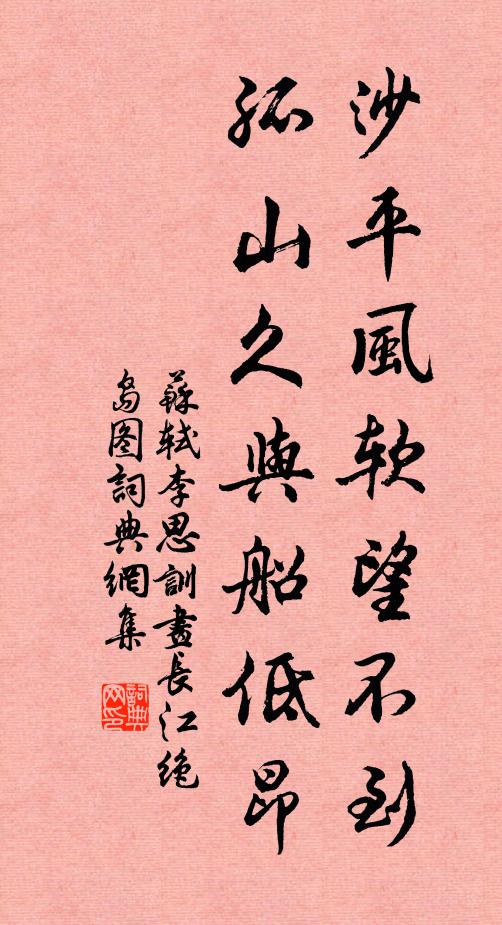 沙平風軟望不到
孤山久與船低昂
蘇軾李思訓畫長江絶
島图詞典網集
詞典网印